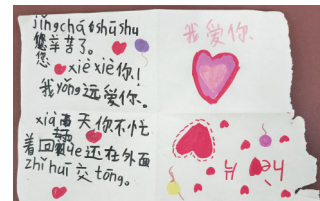 jǐngchá shūshu
您辛苦了。
您 xiè xiè 你!
我 yǒng 远爱你。
xià 雨天你不忙
着回家 还在外面
zhǐ huī 交 tōng。
我爱你
hè